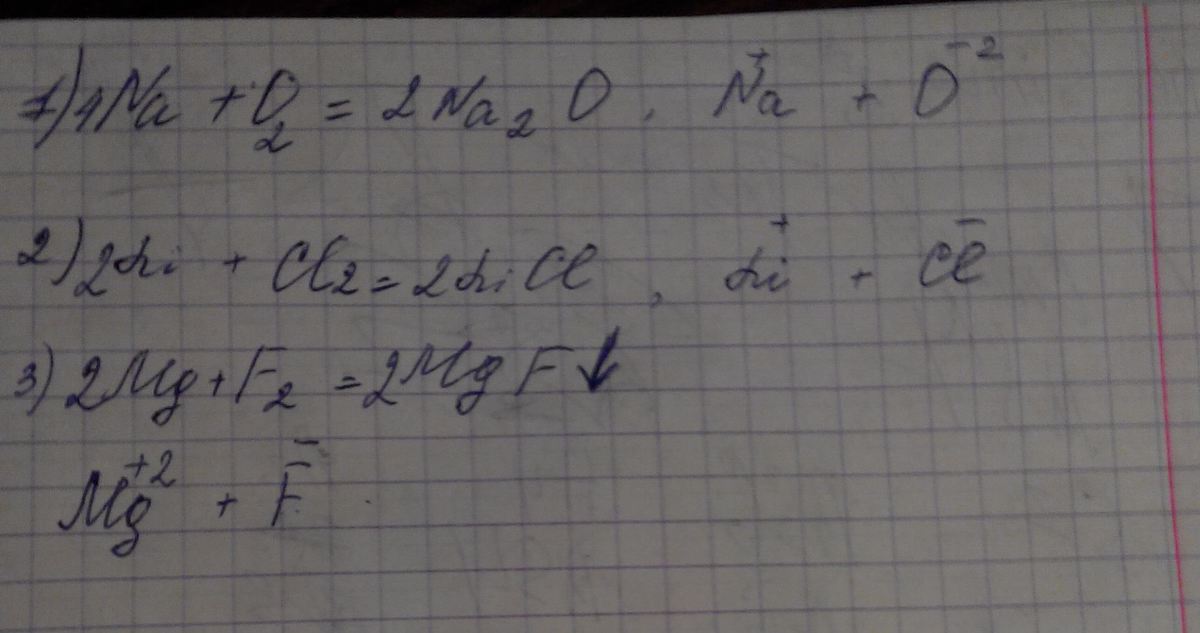 1) 4Na + O₂ = 2Na₂O, Na⁺ + O⁻²
2) 2Li + Cl₂ = 2LiCl, Li⁺ + Cl⁻
3) 2Mg + F₂ = 2MgF↓
Mg⁺² + F⁻